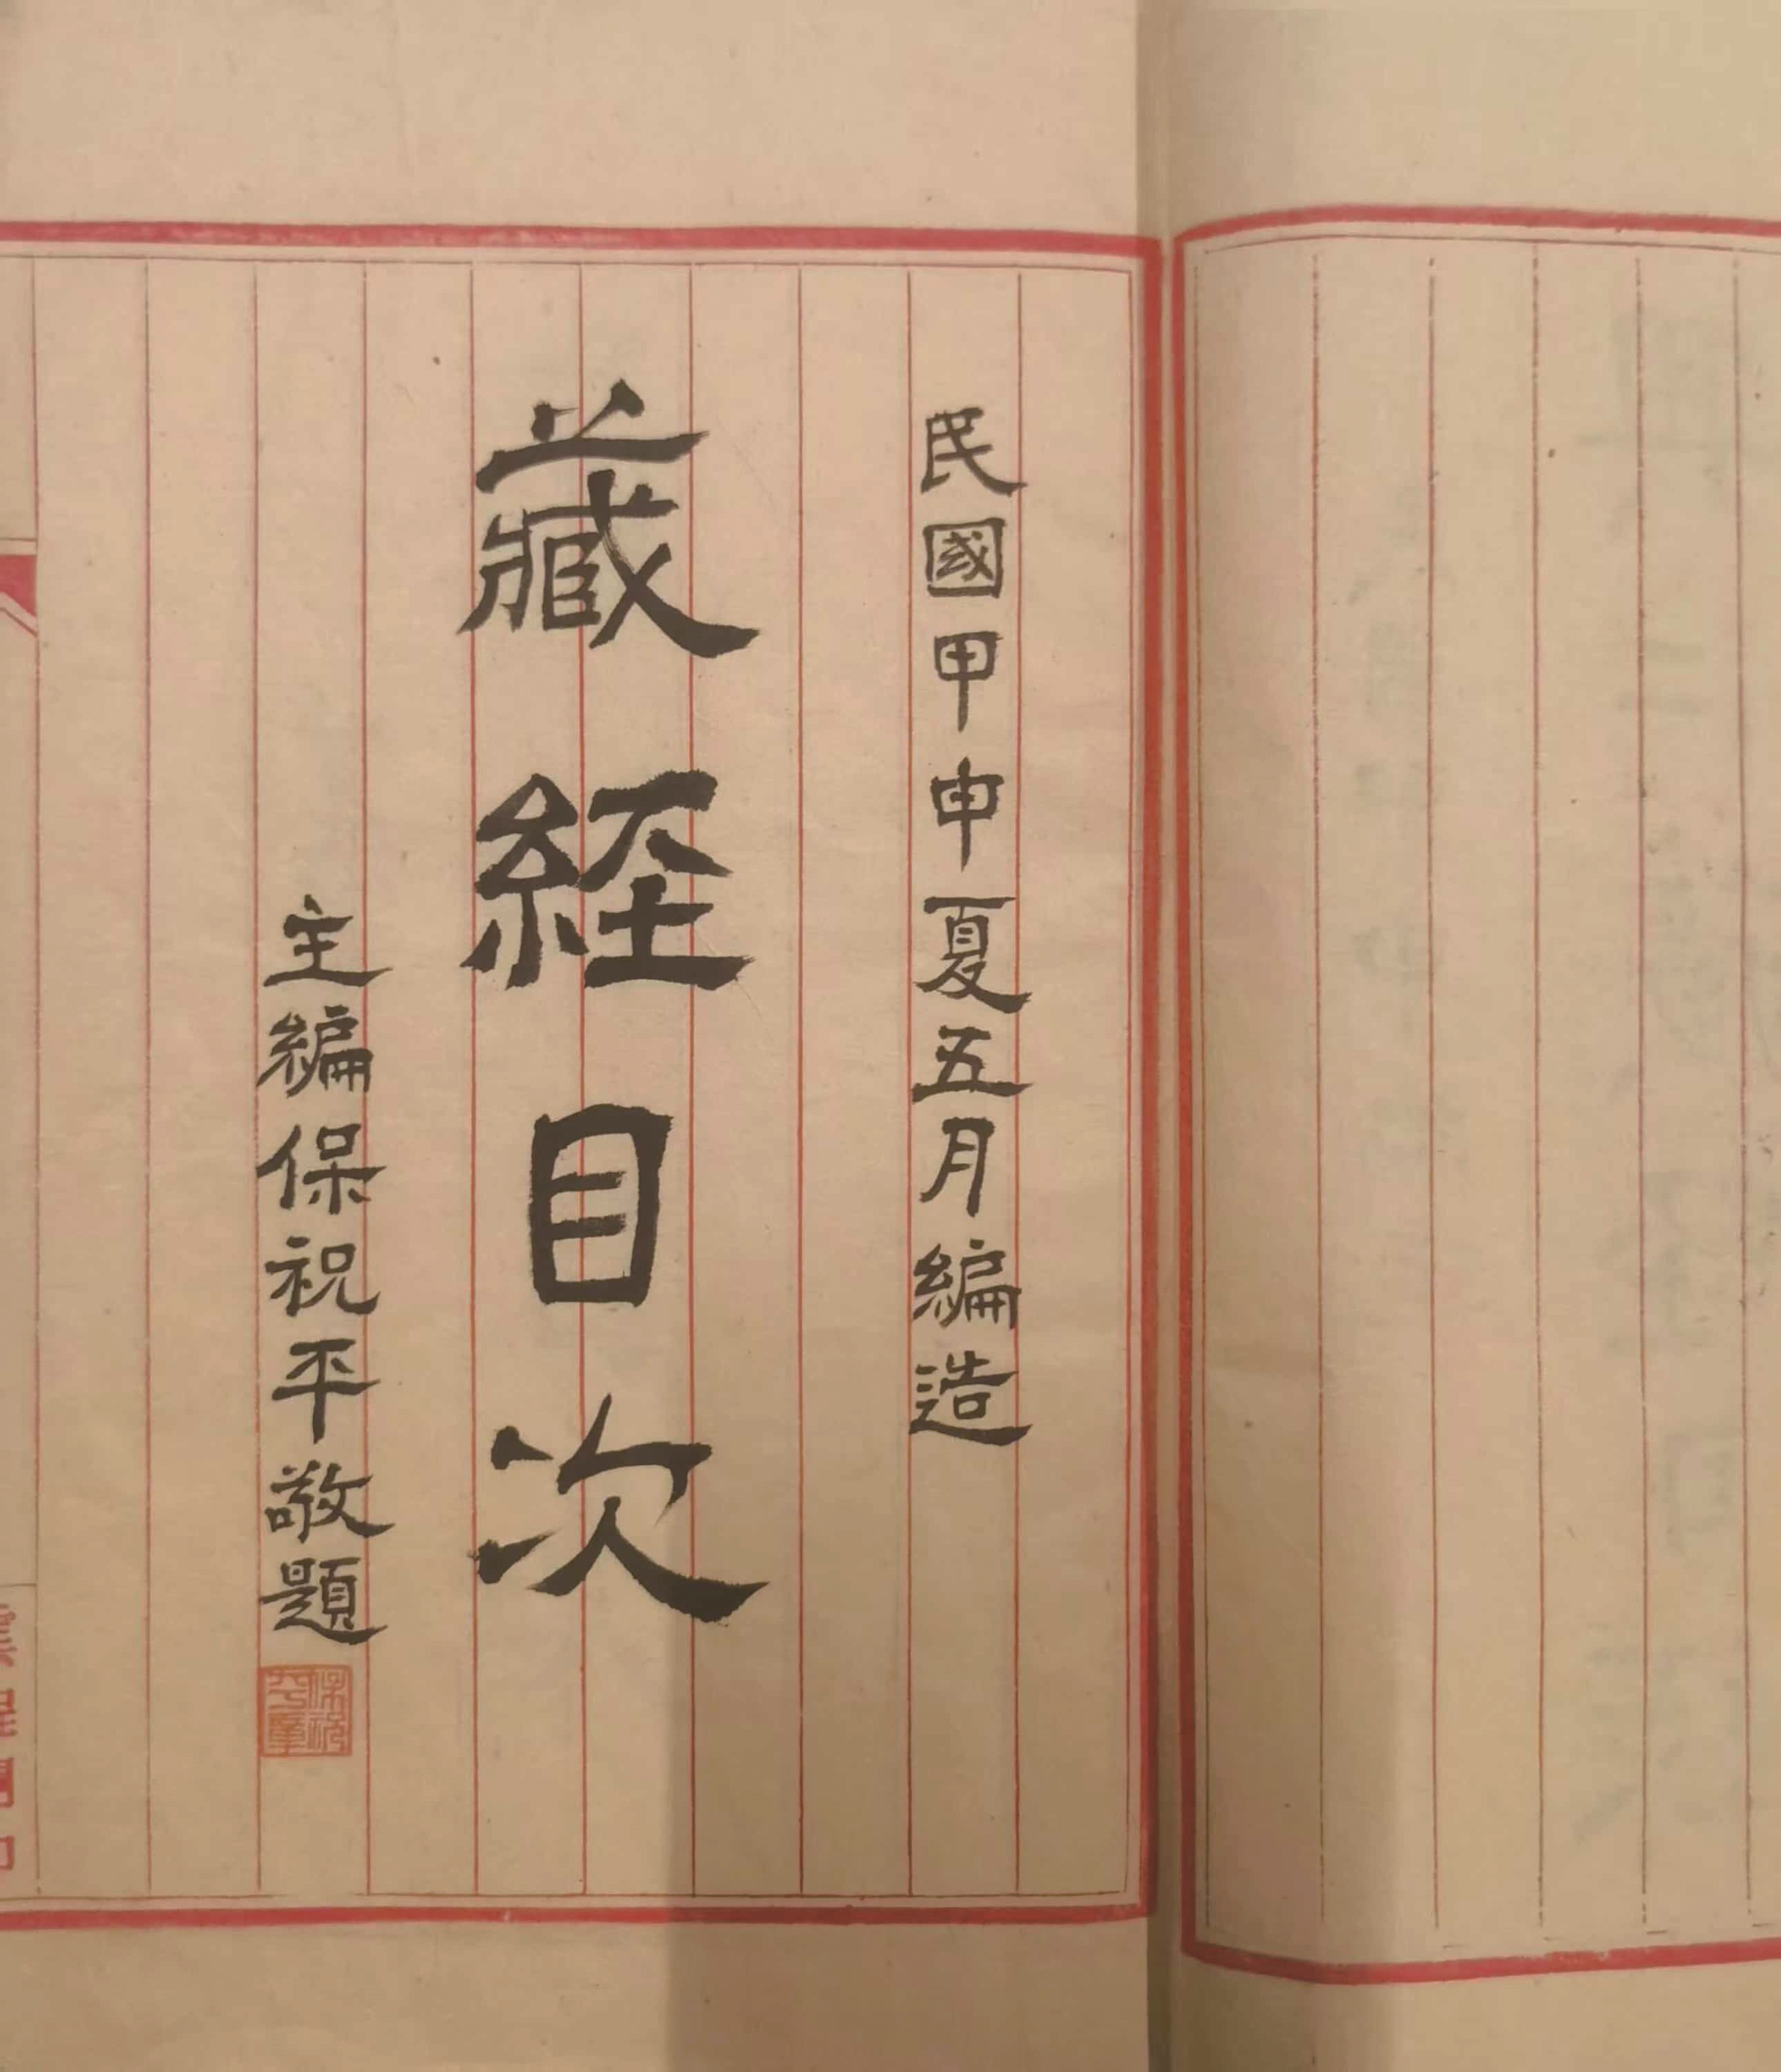 民國甲申夏五月編造
藏經目次
主編保祝平敬題